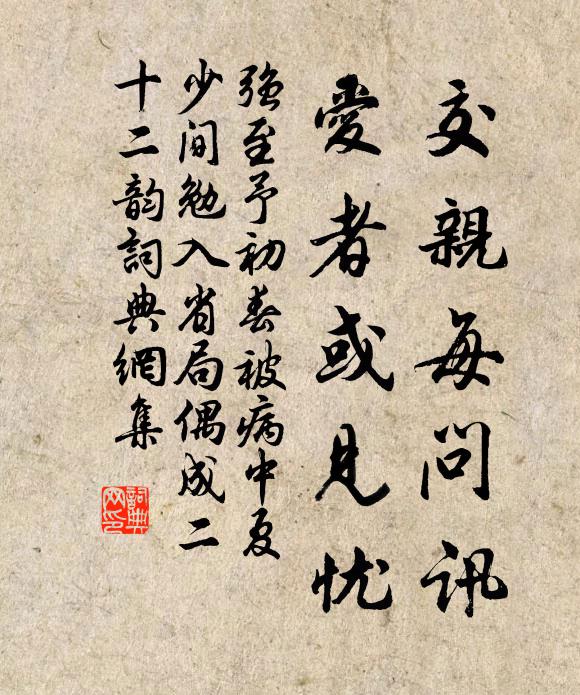 交親每問訊
愛者或見忧
強至予初春被病中夏
少间勉入省局偶成二
十二韵詞典網集
詞典
网印